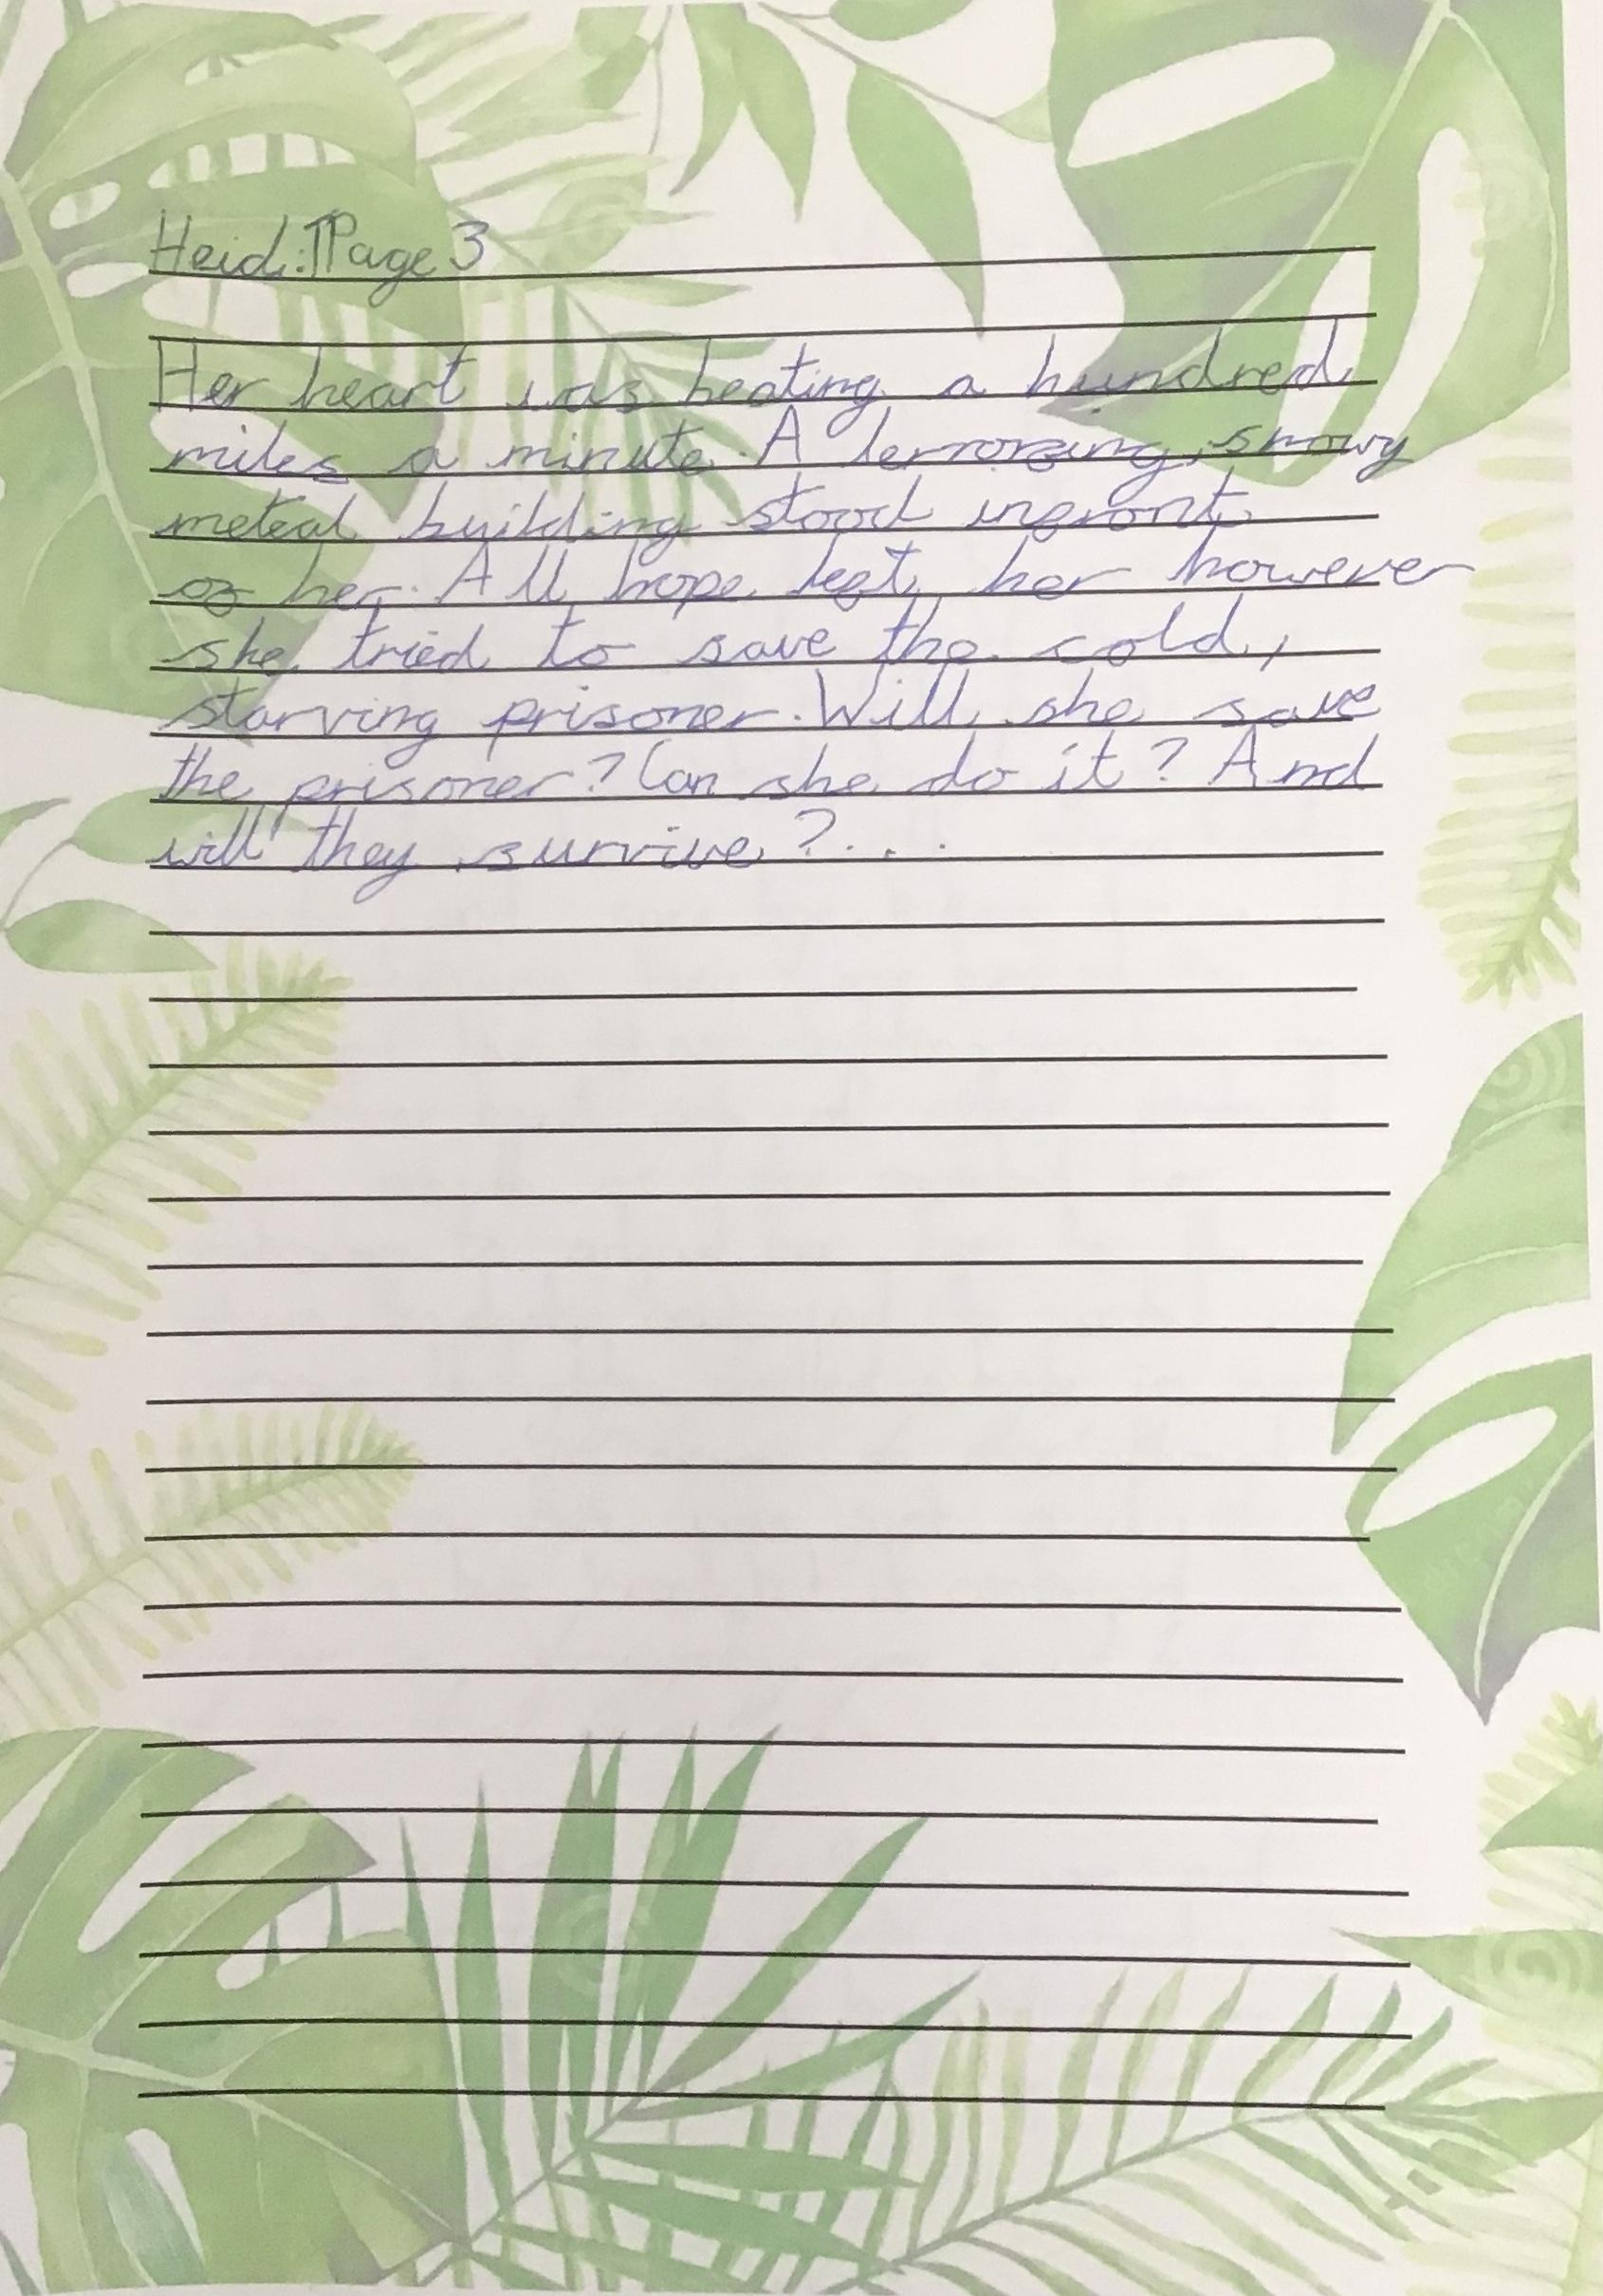 Heidi Page 3
Her heart was beating a hundred
miles a minute. A terrorzing, snowy
meteal building stood infront
of her. All hope left her however
she tried to save the cold,
starving prisoner. Will she save
the prisoner? Can she do it? And
will they survive?...